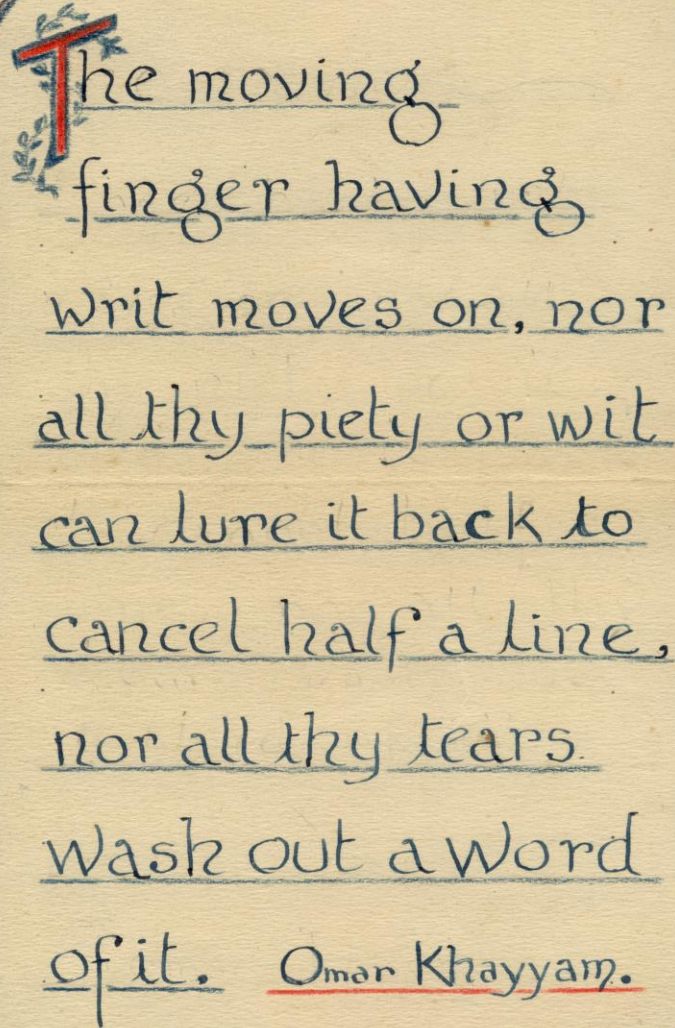 The moving
finger having
writ moves on, nor
all thy piety or wit
can lure it back to
cancel half a line,
nor all thy tears
wash out a word
of it. Omar Khayyam.